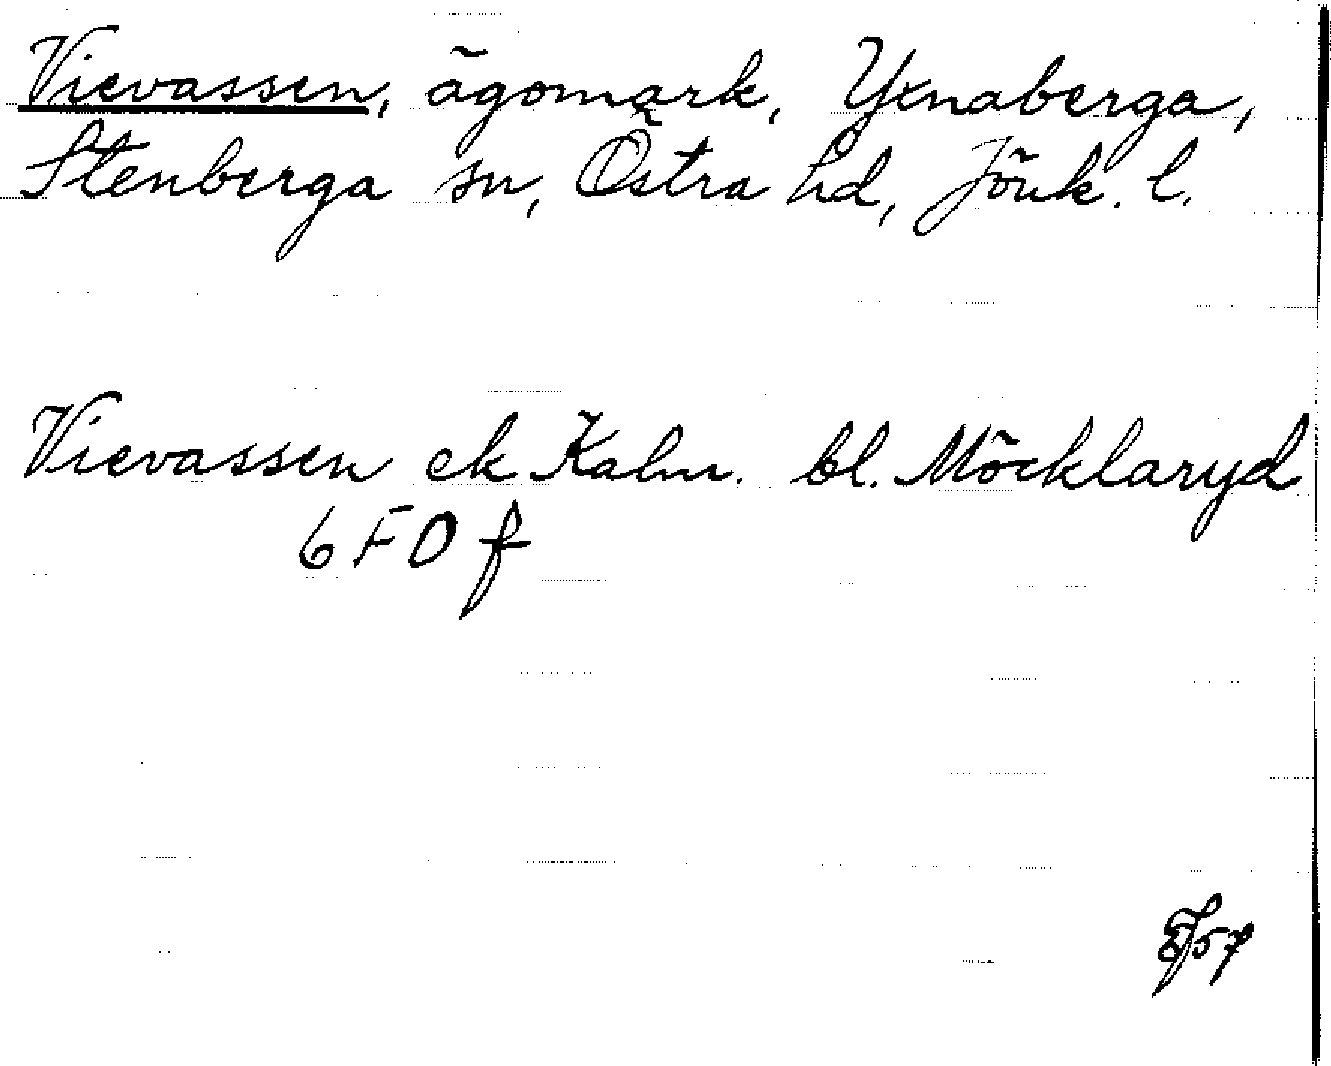 Vievassen, ägomark, Yxnaberga,
Stenberga sn, Östra hd, Jönk. l.
Vievassen ek Kalm. bl. Möcklaryd
6 F 0 f